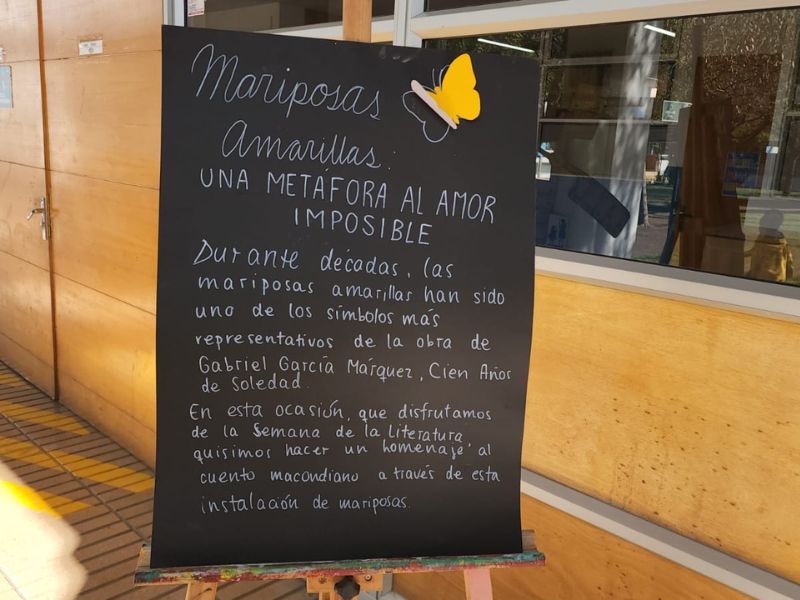 Mariposas
Amarillas:
UNA METÁFORA AL AMOR
IMPOSIBLE
Durante décadas, las
mariposas amarillas han sido
uno de los símbolos más
representativos de la obra de
Gabriel García Márquez, Cien Años
de Soledad.
En esta ocasión, que disfrutamos
de la Semana de la Literatura,
quisimos hacer un homenaje al
cuento macondiano a través de esta
instalación de mariposas.